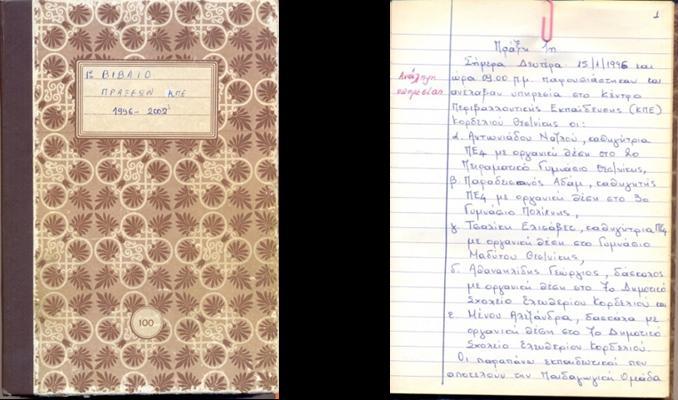 1ο ΒΙΒΛΙΟ
ΠΡΑΞΕΩΝ ΚΠΕ
1996-2002
100
1
Πράξη 1η
Σήμερα Δευτέρα 15/1/1996 και
ώρα 09.00 π.μ. παρουσιάστηκαν και
Ανάληψη
υπηρεσίας
ανέλαβαν υπηρεσία στο Κέντρο
Περιβαλλοντικής Εκπαίδευσης (ΚΠΕ)
Κορδελιού Θεσ/νίκης οι:
α. Αντωνιάδου καθηγήτρια
ΠΕ4 με οργανική θέση στο 2ο
Πειραματικό Γυμνάσιο Θεσ/νίκης,
β. Παραδεισανός Αδάμ, καθηγητής
ΠΕ4 με οργανική θέση στο 3ο
Γυμνάσιο Πολίχνης,
γ. Τσαλίκη Ελισάβετ, καθηγήτρια ΠΕ4
με οργανική θέση στο Γυμνάσιο
Μαδύτου Θεσ/νίκης,
δ. Αθανασιάδης Γεώργιος, δάσκαλος
με οργανική θέση στο 7ο Δημοτικό
Σχολείο Ελευθερίου Κορδελιού και
ε. Μένου Αλεξάνδρα, δασκάλα με
οργανική θέση στο 7ο Δημοτικό
Σχολείο Ελευθερίου Κορδελιού.
Οι παραπάνω εκπαιδευτικοί που
αποτελούν την Παιδαγωγική Ομάδα